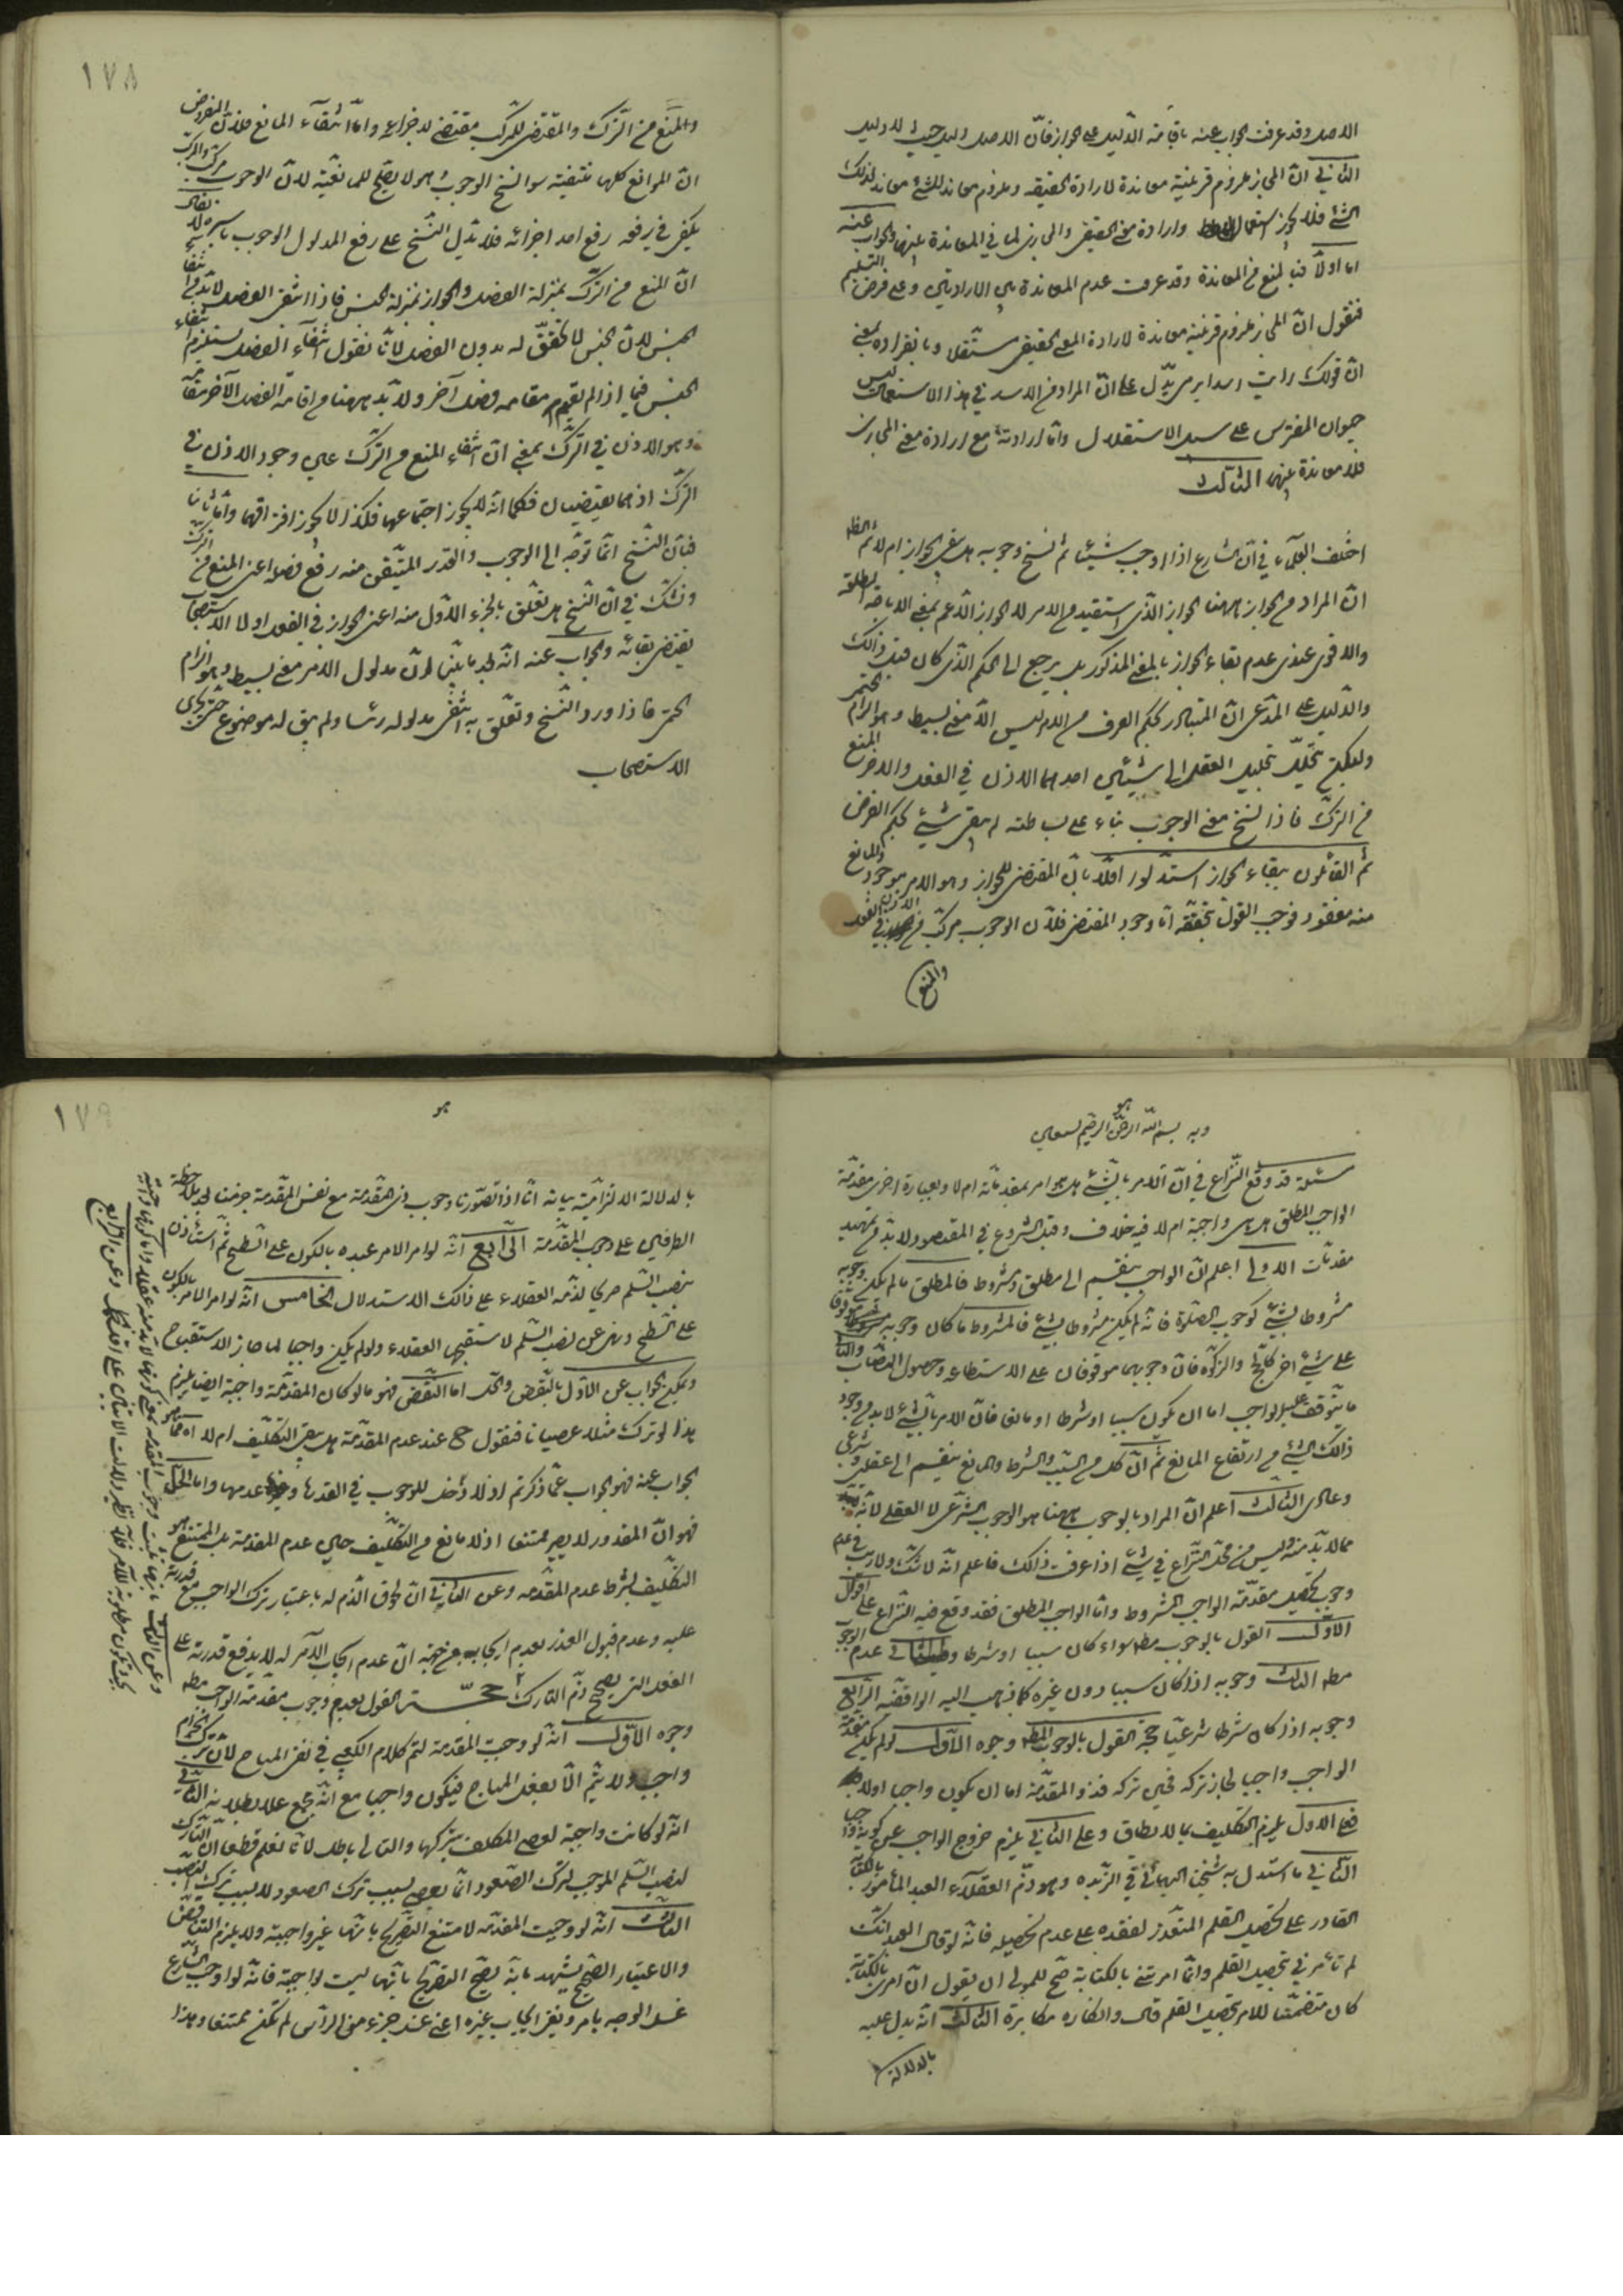 الاصل وقد عرفت الجواب عنه باقامة الدليل على الجواز فان الاصل دليل حيث لا دليل
الثاني ان المجاز ملزوم قرينة معاندة لارادة الحقيقه وملزوم معاند الشئ معاند لذلك
الشئ فلا يجوز استعمال اللفظ وارادة معنى الحقيقي والمجازي لما في المعاندة بينهما والجواب عنه
اما اولا فبالمنع من المعاندة وقد عرفت عدم المعاندة بين الارادتين وعلى فرض التسليم
فنقول ان المجاز ملزوم قرينة معاندة لارادة المعنى الحقيقي مستقلا وبانفراده بمعنى
ان قولك رايت اسدا يرمى يدل على ان المراد من الاسد في هذا الاستعمال ليس
حيوان المفترس على سبيل الاستقلال واما ارادته مع ارادة معنى المجازى
فلا معاندة بينهما الثالث
اختلف العلماء في ان الشارع اذا اوجب شيئا ثم نسخ وجوبه هل يبقى الجواز ام لا ثم الظ
ان المراد من الجواز ههنا الجواز الذى استفيد من الامر لا الجواز الاعم بمعنى الاباحة المطلقة
والاقوى عندى عدم بقاء الجواز بالمعنى المذكور بل يرجع الى الحكم الذى كان قبل ذالك
والدليل على المدعى ان المتبادر بحكم العرف من الامر ليس الا معنى بسيط وهو الزام الحتمى
ولكن يتحلل بتحليل العقل الى شيئين احدهما الاذن في الفعل والاخر المنع
من الترك فاذا نسخ معنى الوجوب بناء على بساطته لم يبق شيئ بحكم الفرض
ثم القائلون ببقاء الجواز استدلوا اولا بان المقتضى للجواز وهو الامر موجود والمانع
منه مفقود فوجب القول بتحققه اما وجود المقتضى فلان الوجوب مركب من الاذن في الفعل
والمنع
١٧٨
والمنع من الترك والمقتضى للمركب مقتضى لاجزائه واما انتفاء المانع فلان المفروض
ان الموانع كلها منتفية سوا نسخ الوجوب وهو لا يصلح للمانعية لان الوجوب مركب والمركب
يكفى في رفعه رفع احد اجزائه فلا يدل النسخ على رفع المدلول الوجوب باسره لا يقال
ان المنع من الترك بمنزلة الفصل والجواز بمنزلة الجنس فاذا انتفى الفصل لابد من انتفاء
الجنس لان الجنس لا تحقق له بدون الفصل لانا نقول انتفاء الفصل يستلزم انتفاء
الجنس فيما اذا لم تقم مقامه فصل آخر ولابد ههنا من اقامة الفصل الآخر مقامه
وهو الاذن في الترك بمعنى ان انتفاء المنع من الترك عين وجود الاذن في
الترك اذ هما نقيضان فكما انه لا يجوز اجتماعهما فكذا لا يجوز افتراقهما واما ثانيا
فبان النسخ انما توجه الى الوجوب والقدر المتيقن منه رفع فصله اعنى المنع من الترك
ونشك في ان النسخ هل تعلق بالجزء الاول منه اعنى الجواز في الفعل اولا الاستصحاب
يقتضى بقائه والجواب عنه انه لما بينا ان مدلول الامر معنى بسيط وهو الزام
الحتمى فاذا ورد النسخ وتعلق به انتفى مدلوله رئسا ولم يبق له موضوع حتى يجرى
الاستصحاب
هو
وبه بسم الله الرحمن الرحيم نستعين
مسئلة قد وقع النزاع في ان الامر بالشئ هل هو امر بمقدماته ام لا وبعبارة اخرى مقدمة
الواجب المطلق هل هى واجبة ام لا فيه خلاف وقبل الشروع في المقصود لابد من تمهيد
مقدمات الاولى اعلم ان الواجب ينقسم الى مطلق ومشروط فالمطلق ما لم يكن وجوبه
مشروطا بشئ كوجوب الصلوة فانه لم يكن مشروطا بشئ فالمشروط ما كان وجوبه موقوفا
على شئ اخر كالحج والزكوة فان وجوبهما موقوفان على الاستطاعة وحصول النصاب والثانية
ما يتوقف عليه الواجب اما ان يكون سببا او شرطا او مانعا فان الامر بالشئ لابد من وجود
ذالك الشئ من ارتفاع المانع ثم ان كل من السبب والشرط والمانع ينقسم الى عقلى وشرعى
وعادى الثالث اعلم ان المراد بالوجوب ههنا هو الوجوب الشرعى لا العقلى لانه
مما لابد منه وليس من محل النزاع في شئ اذا عرفت ذالك فاعلم انه لا شك ولا ريب في عدم
وجوب تحصيل مقدمة الواجب المشروط واما الواجب المطلق فقد وقع فيه النزاع على اقوال
الاول القول بالوجوب مط سواء كان سببا او شرطا والثانى عدم الوجوب
مط الثالث وجوبه اذا كان سببا دون غيره كما ذهب اليه الواقفيه الرابع
وجوبه اذا كان شرطا شرعيا حجة القول بالوجوب المط وجوه الاول لو لم يكن مقدمة
الواجب واجبا لجاز تركه فحين تركه فذو المقدمة اما ان يكون واجبا اولا
فعلى الاول يلزم التكليف بما لا يطاق وعلى الثاني يلزم خروج الواجب عن كونه واجبا
الثاني ما استدل به شيخنا البهائى في الزبده وهو ذم العقلاء العبد المأمور بالكتابة
القادر على تحصيل القلم المتعذر لفقده على عدم تحصيله فانه لو قال العبد انك
لم تأمرنى بتحصيل القلم وانما امرتنى بالكتابة صح للمولى ان يقول ان امرى بالكتابة
كان متضمنا للامر بتحصيل القلم قال وانكاره مكابرة الثالث انه يدل عليه
بالدلالة
١٧٩
هو
بالدلالة الالتزامية بيانه انا اذا تصورنا وجوب ذى المقدمة مع نفس المقدمة جزمنا بملاحظة
الطرفين على وجوب المقدمة الرابع انه لو امر الامر عبده بالكون على السطح ثم استأذن
بنصب السلم صريحا لذمه العقلاء على ذالك الاستدلال الخامس انه لو امر الامر بالكون
على السطح ونهى عن نصب السلم لاستقبحه العقلاء ولو لم يكن واجبا لما جاز الاستقباح
ويمكن الجواب عن الاول بالنقض والحل اما النقض فهو ما لو كان المقدمة واجبة ايضا يلزم
هذا لو ترك مثلا عصيانا فنقول ح عند عدم المقدمة هل يبقى التكليف ام لا فما هو
الجواب عنه فهو الجواب عما ذكرتم اذ لا دخل للوجوب في القدرة وعدمها واما الحل
فهو ان المقدور لا يصير ممتنعا اذ لا مانع من التكليف حين عدم المقدمة بل الممتنع هو
التكليف بشرط عدم المقدمه وعن الثاني ان لحوق الذم له باعتبار ترك الواجب مع قدرته
عليه وعدم قبول العذر بعدم ايجابه من جهة ان عدم ايجاب الآمر له لا يدفع قدرته على
الفعل التى يصح ذم التارك حجة القول بعدم وجوب مقدمة الواجب مط
وجوه الاول انه لو وجبت المقدمة لتم كلام الكعبى في نفى المباح لان ترك الحرام
واجب ولا يتم الا بفعل المباح فيكون واجبا مع انه مجمع على بطلانه الثانى
انه لو كانت واجبة لعصى المكلف بتركها والتالى باطل لانا نعلم قطعا ان التارك
لنصب السلم الموجب لترك الصعود انما يعصى بسبب ترك الصعود لا بسبب ترك النصب
الثالث انه لو وجبت المقدمه لامتنع التصريح بانها غير واجبة ولا يلزم التناقض
والاعتبار الصحيح يشهد بانه يصح التصريح بانها ليست بواجبة فانه لو اوجب الشارع
غسل الوجه بامر ونفى ايجاب غيره اعنى غسل جزء من الرأس لم يكن ممتنعا وهذا